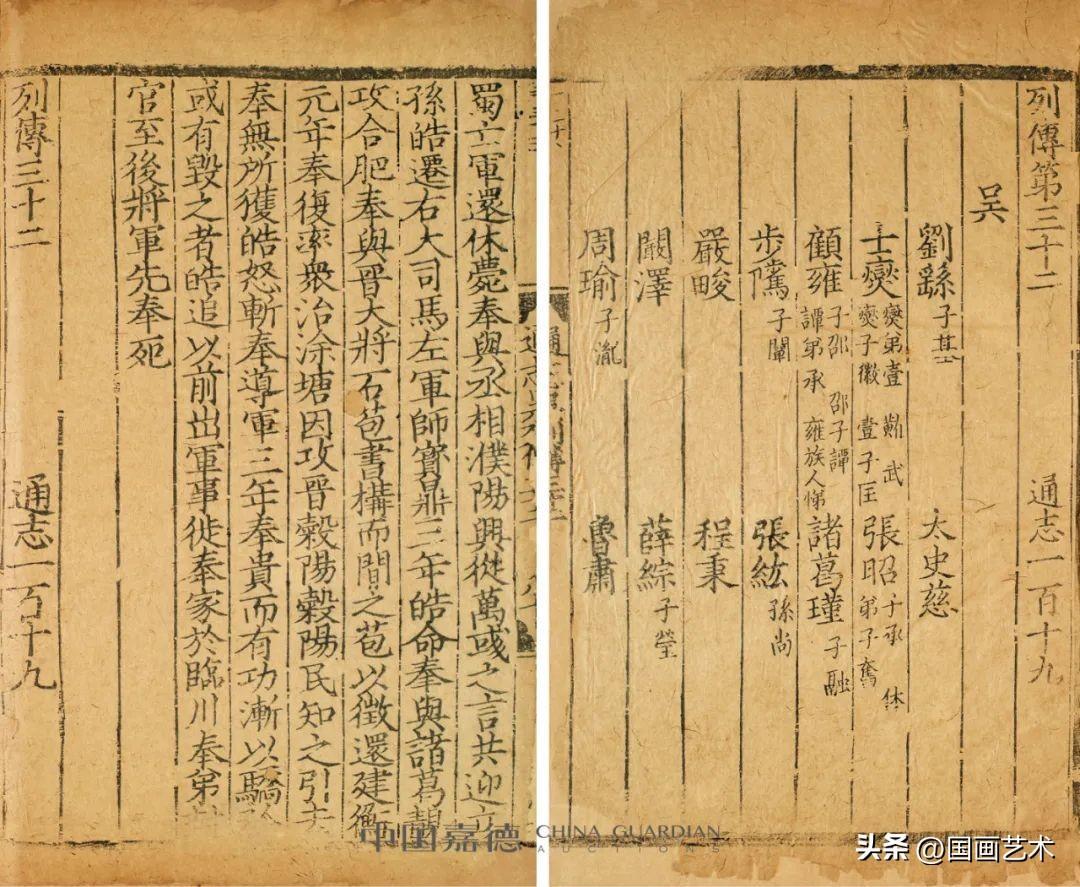 列傳第三十二 通志一百十九
吳
劉繇 子基 太史慈
士燮 燮弟壹 䵋 武 燮子徽 壹子匡 張昭 子承 休 弟子奮
顧雍 子邵 邵子譚 譚弟承 雍族人悌 諸葛瑾 子融
步騭 子闡 張紘 孫尚
嚴畯 程秉
闞澤 薛綜 子瑩
周瑜 子胤 魯肅
蜀亡軍還休薨奉與丞相濮陽興從萬彧之言共迎立
孫皓遷右大司馬左軍師寶鼎三年皓命奉與諸葛靚
攻合肥奉與晉大將石苞書構而間之苞以徵還建衡
元年奉復率衆治涂塘因攻晉穀陽穀陽民知之引去
奉無所獲皓怒斬奉導軍三年奉貴而有功漸以驕
或有毀之者皓追以前出軍事徙奉家於臨川奉弟封
官至後將軍先奉死
列傳三十二 通志一百十九
中国嘉德 CHINA GUARDIAN AUCTIONS
头条 @国画艺术